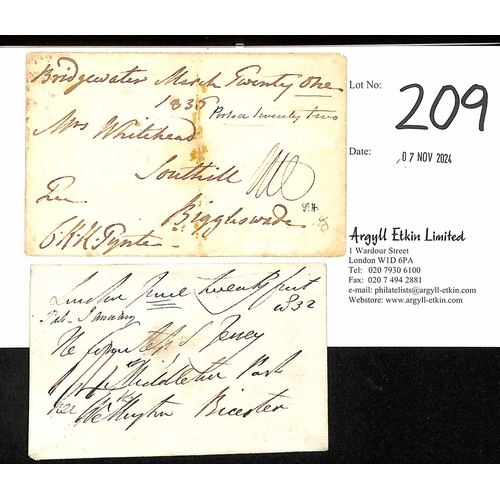 Bridgewater March Twenty One
1835
Posted Twenty two
Mrs Whitehead
Southill
Biggleswade
Free
C.K.K. Tynte
London June twenty first
1832
Jersey
Middleton Park
Free Wellington Bicester
Lot No:
209
Date:
07 NOV 2024
Argyll Etkin Limited
1 Wardour Street
London W1D 6PA
Tel: 020 7930 6100
Fax: 020 7 494 2881
e-mail: philatelists@argyll-etkin.com
Webstore: www.argyll-etkin.com